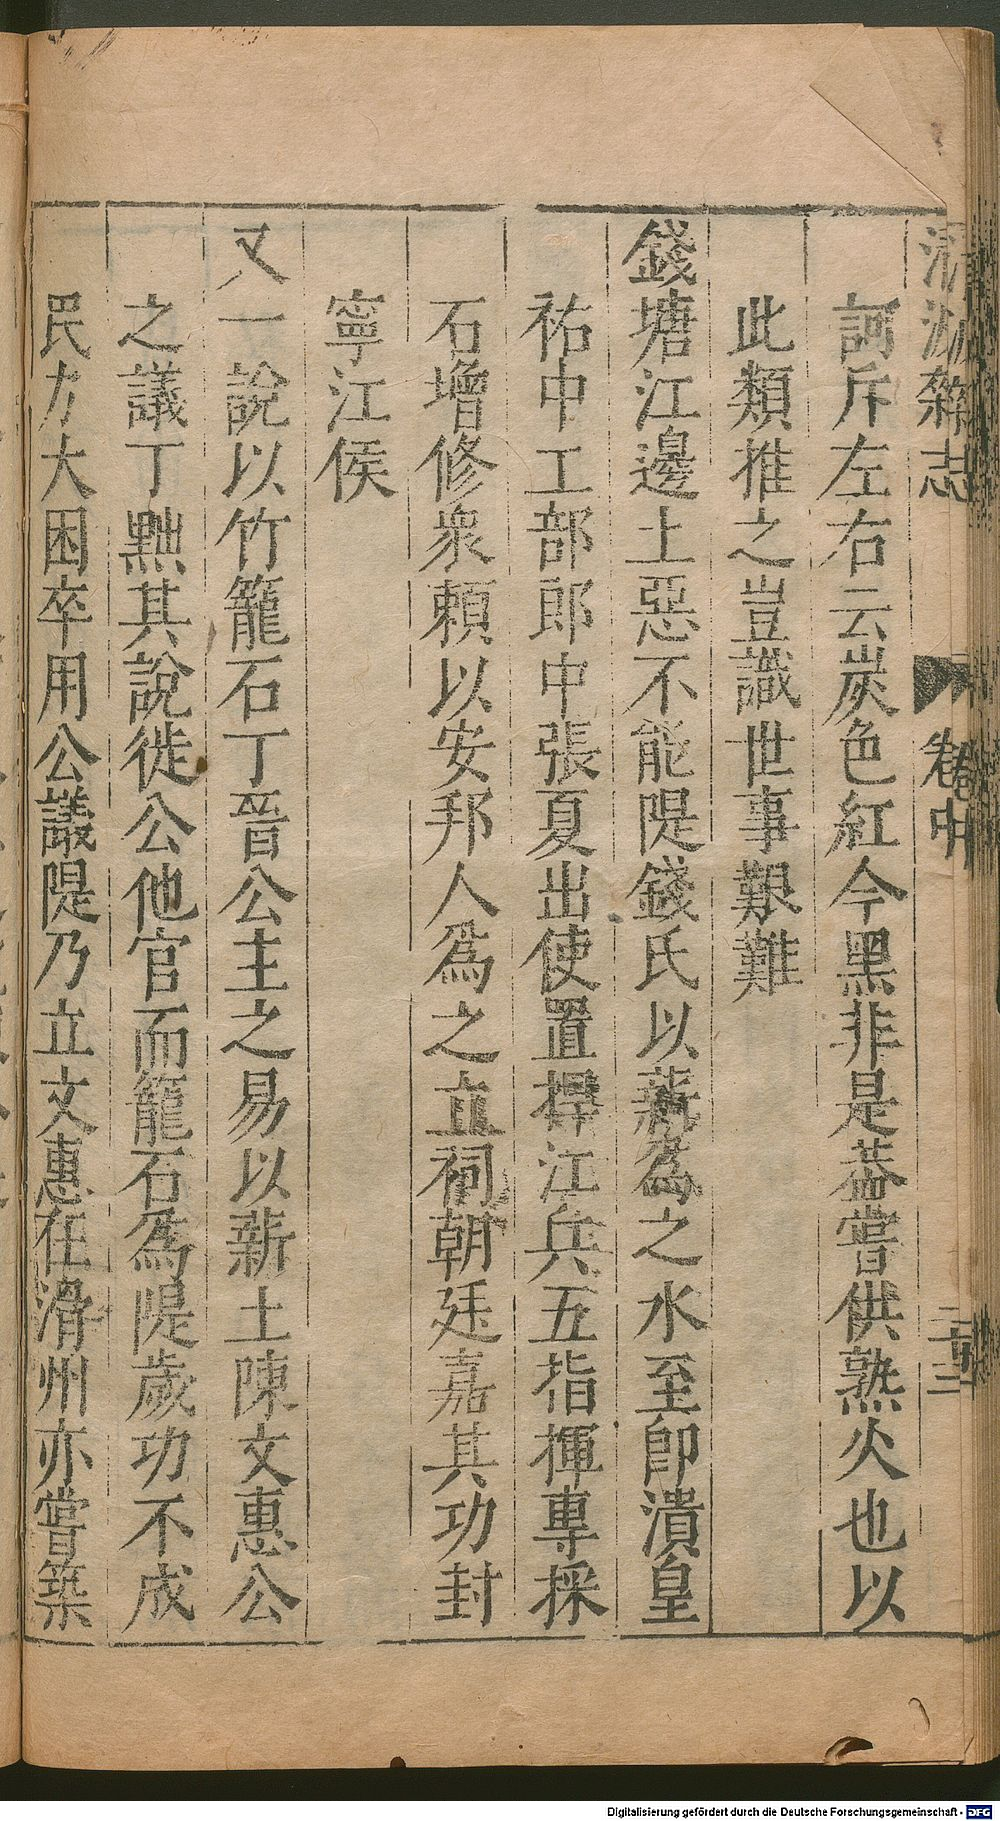 清波雜志 卷中 二十二
訶斥左右云炭色紅今黑非是葢嘗供熟火也以
此類推之豈識世事艱難
錢塘江邊土惡不能隄錢氏以薪為之水至即潰皇
祐中工部郎中張夏出使置捍江兵五指揮專採
石增修衆賴以安邦人爲之立祠朝廷嘉其功封
寧江侯
又一說以竹籠石丁晉公主之易以薪土陳文惠公
之議丁黜其說徙公他官而籠石爲隄歲功不成
民力大困卒用公議隄乃立文惠在滑州亦嘗築
Digitalisierung gefördert durch die Deutsche Forschungsgemeinschaft - DFG